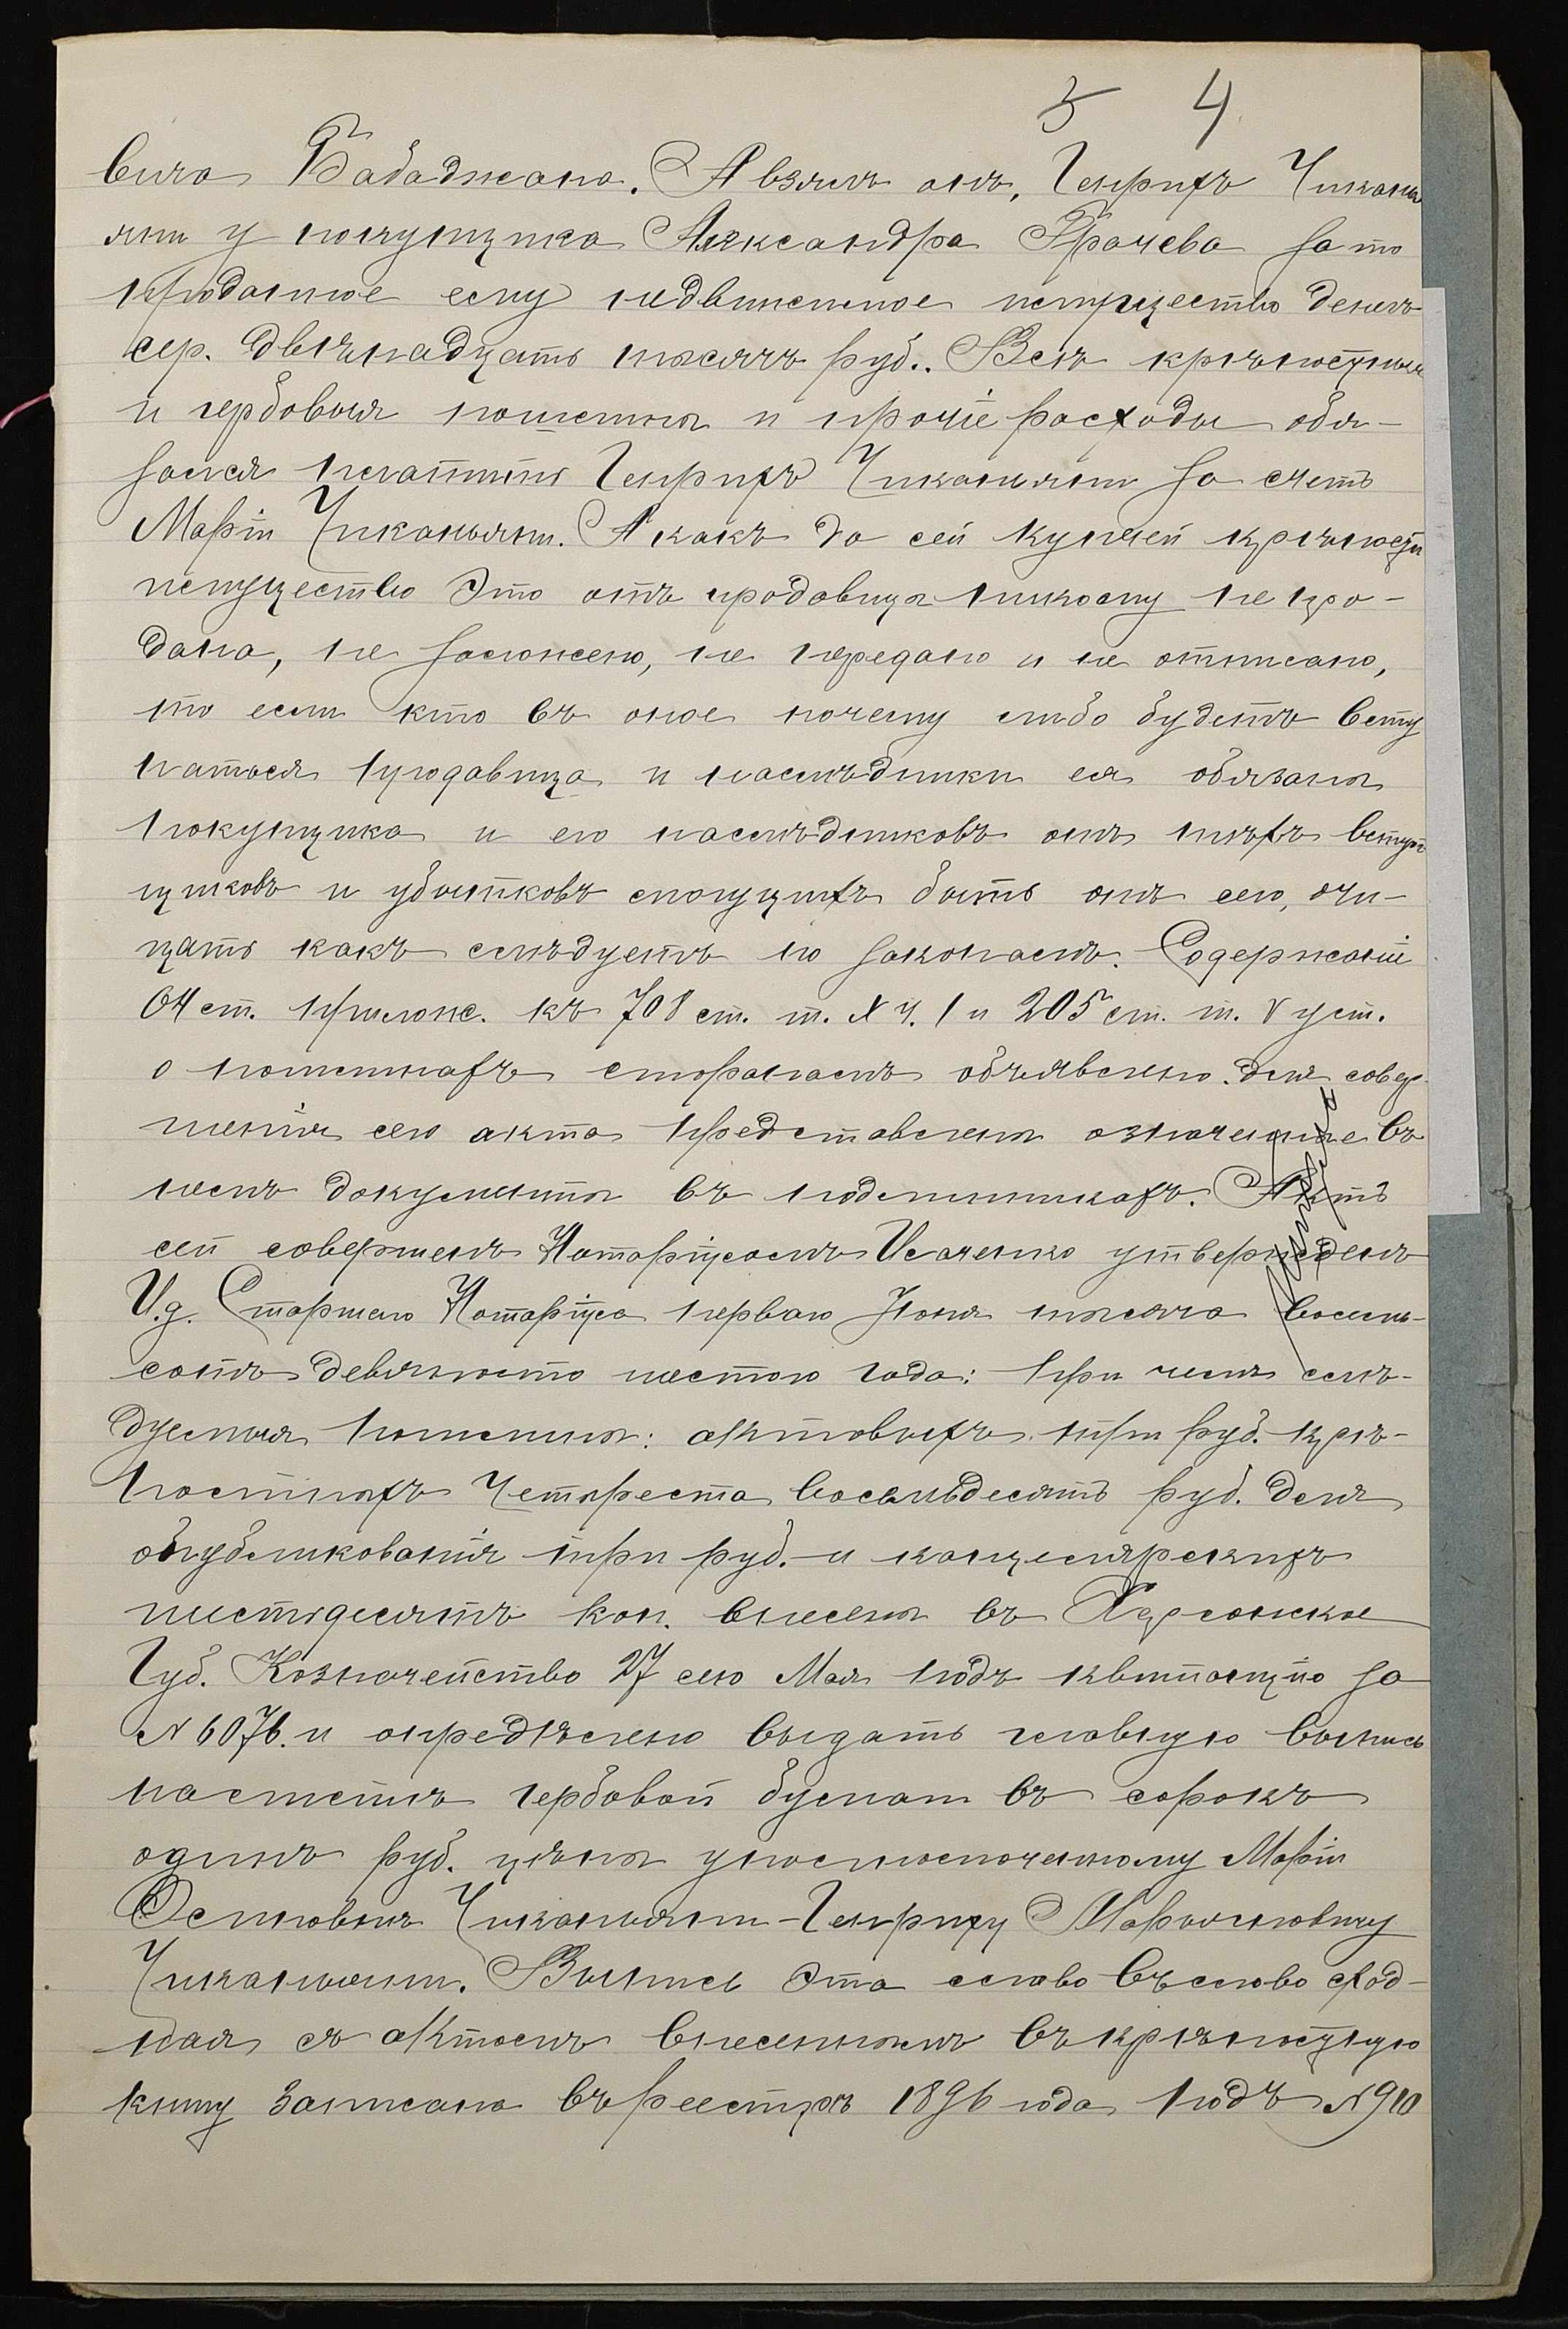 5 4
вича Бабаджана. А взялъ онъ, Генрихъ Чикань
яни у покупщика Александра Грачева за то
проданное ему недвижимое имущество денегъ
сер. двѣнадцать тысячъ руб.. Всѣ крѣпостныя
и гербовыя пошлины и прочіе расходы обя-
зался платить Генрихъ Чиканьяни за счетъ
Маріи Чиканьяни. А какъ до сей купчей крѣпости
имущество это отъ продавицы никому не про-
дано, не заложено, не передано и не отписано,
то если кто въ оное почему либо будетъ всту
паться продавица и наслѣдники ея обязаны
покупщика и его наслѣдниковъ отъ тѣхъ вступ
щиковъ и убытковъ могущихъ быть отъ сего, очи-
щать какъ слѣдуетъ по законамъ. Содержаніе
84 ст. прилож. къ 708 ст. т. X ч. 1 и 205 ст. т. V уст.
о пошлинахъ сторонамъ объявлено. Для совер-
шенія сего акта представлены означенные въ
немъ документы въ подлинникахъ. Актъ
сей совершенъ Нотаріусомъ Исаченко утвержденъ
И.д. Старшаго Нотаріуса перваго Іюня тысяча восемь-
сотъ девяносто шестого года: при чемъ слѣ-
дуемыя пошлины: актовыхъ три руб. крѣ-
постныхъ четыреста восемьдесятъ руб. для
опубликованія три руб. и канцелярскихъ
шестьдесятъ коп. внесены въ Херсонское
Губ. Казначейство 27 сего Мая подъ квитанцію за
N 6076. и опредѣлено выдать главную выпись
на листѣ гербовой бумаги въ сорокъ
одинъ руб. цѣны уполномоченному Маріи
Осиповны Чиканьяни - Генриху Маріановичу
Чиканьяни. Выпись эта слово въ слово сход-
ная съ актомъ внесеннымъ въ крѣпостную
книгу записана въ реестръ 1896 года подъ N 910